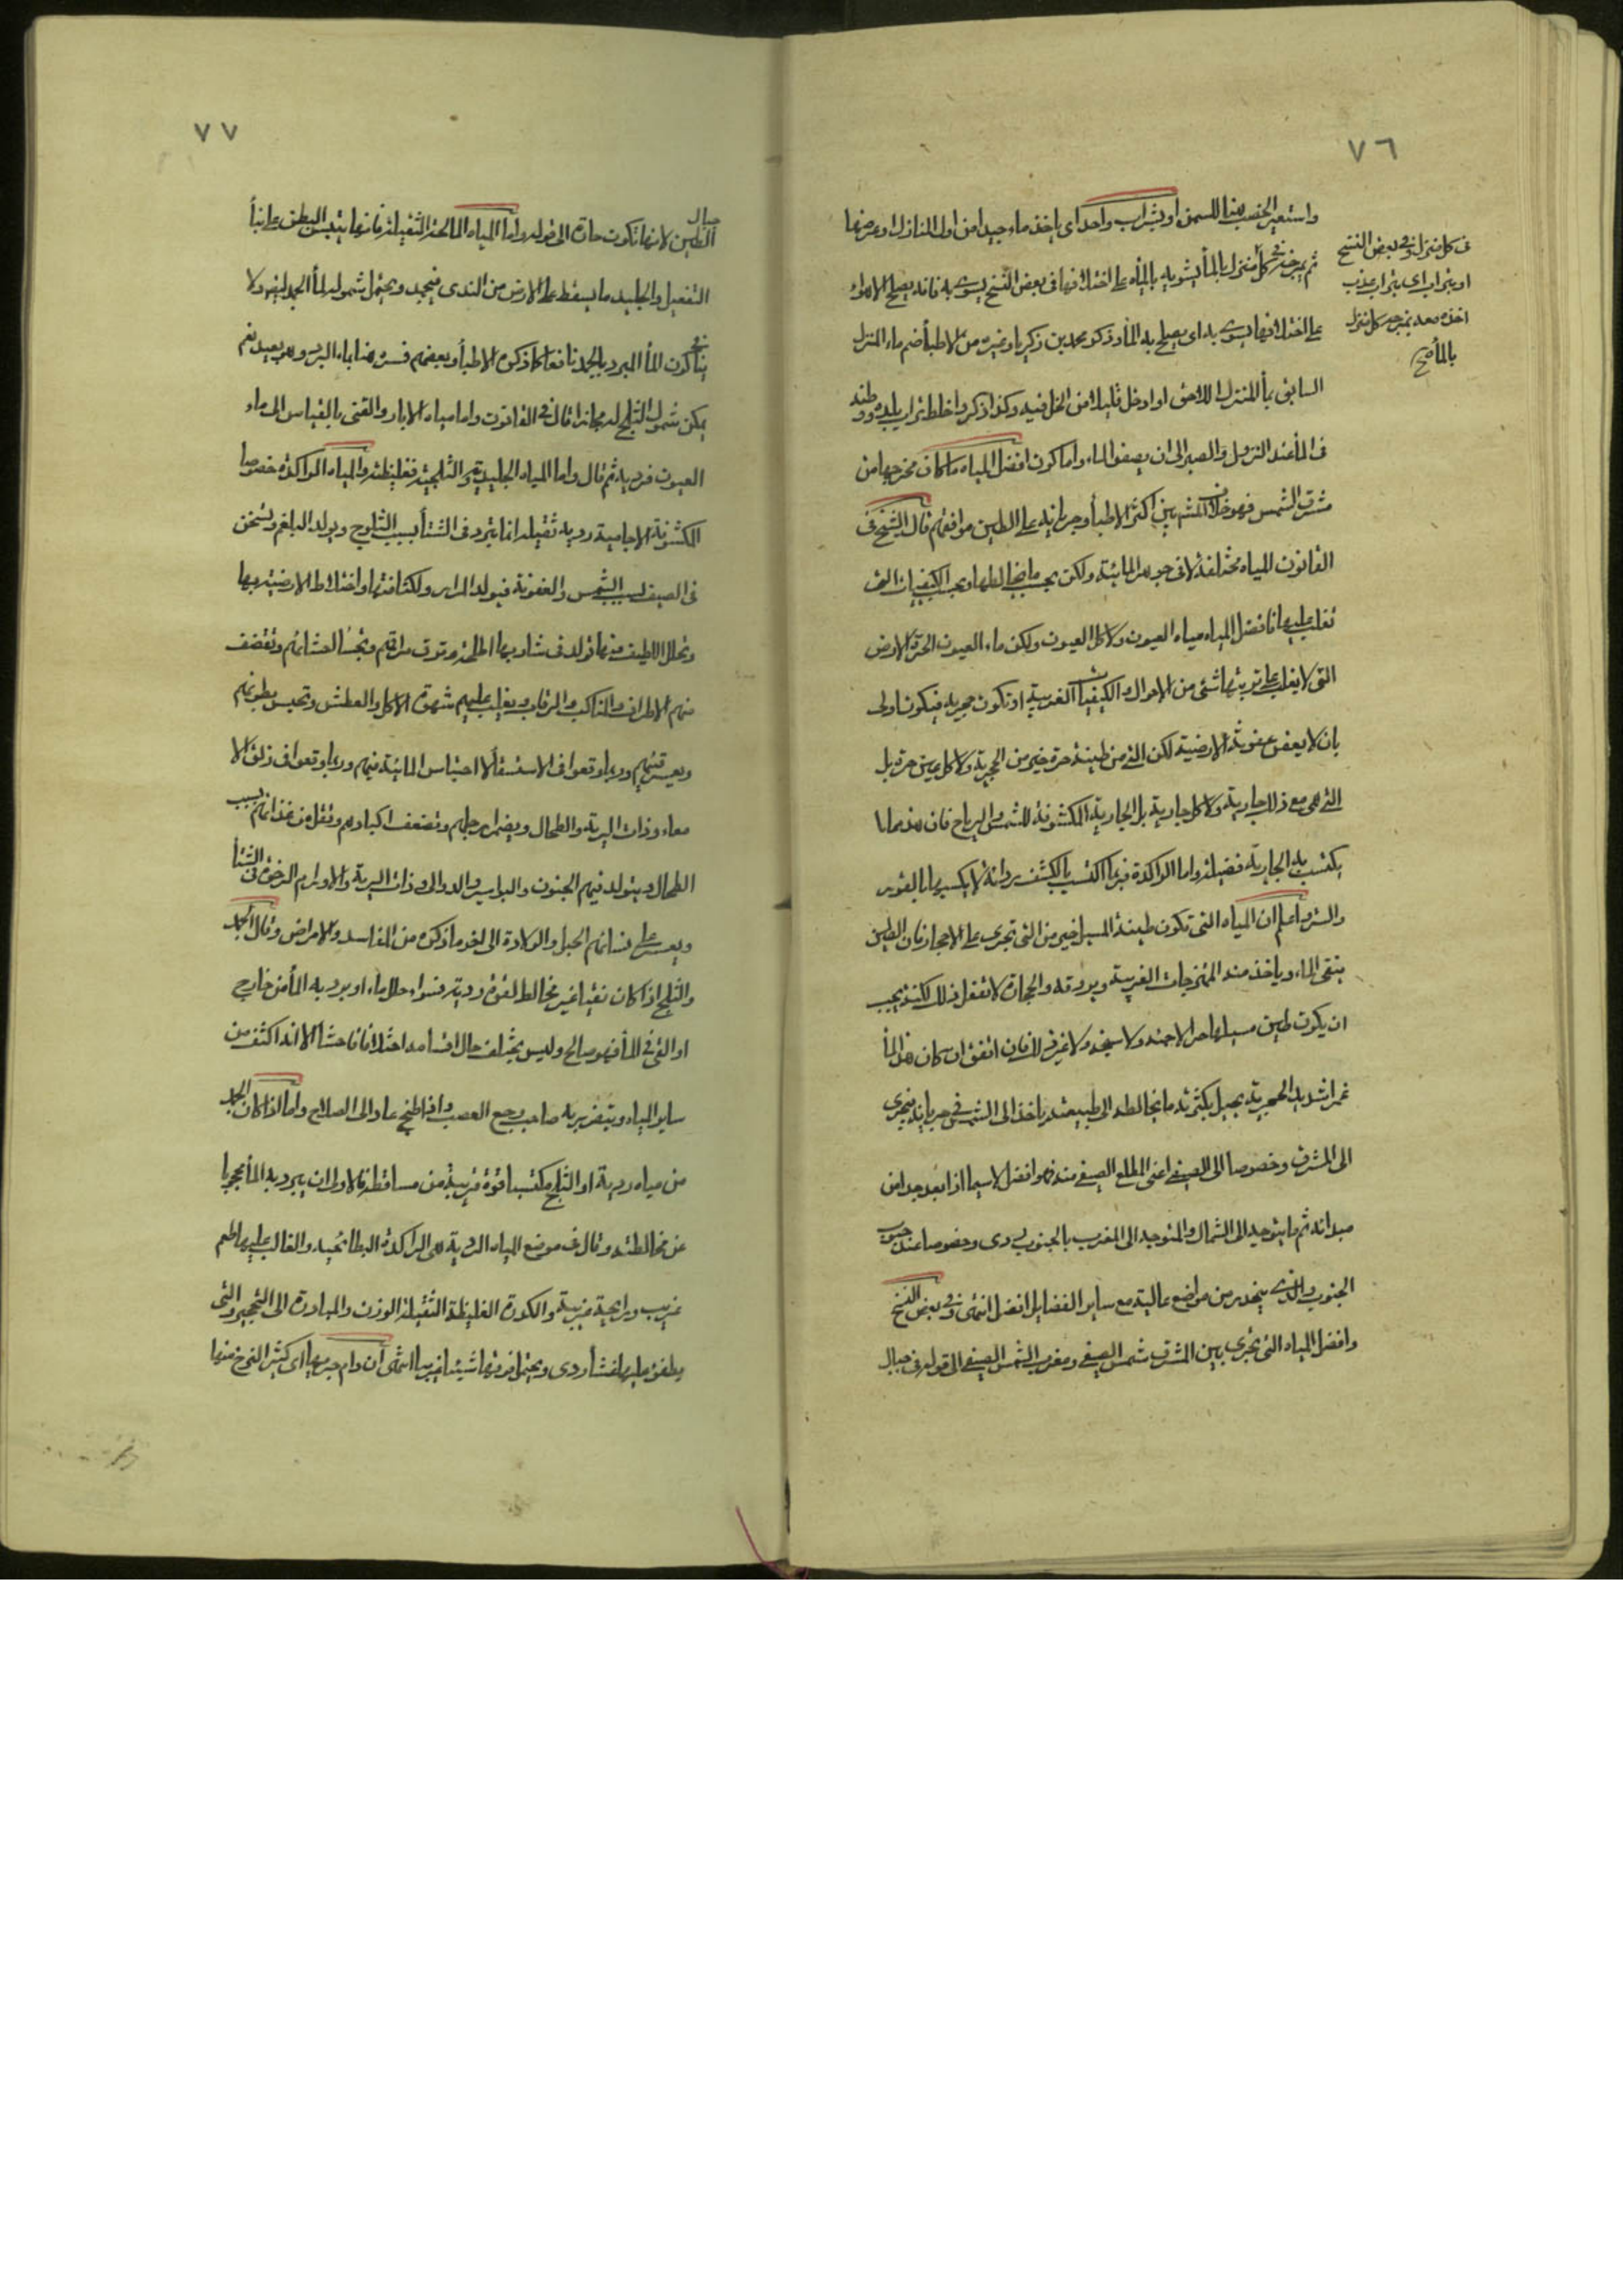 ٧٦
واستعير الخصب هنا للسمن او بشراب واحد اى ياخذ ماء جيدا من اول المنازل او عرضها
ثم يمزجه فى كل منزل بالمأ يشوبه بالمياه على اختلافها فى بعض النسخ يسوى به فانه يصلح الاهواء
على اختلافها يسوى به اى يصلح به المأ وذكر محمد بن زكريا وغيره من الاطبأ ضم ماء المنزل
السابق بمأ المنزل اللاحق او ادخل قليلا من الخل فيه وكذا ذكر واخلط تراب بلده ووطنه
فى المأ عند النزول والصبر الى ان يصفو الماء واما كون افضل المياه ما كان مخرجها من
مشرق الشمس فهو خلاف المشهور بين اكثر الاطبأ وجريانه على الطين موافقهم قال الشيخ فى
القانون المياه مختلفة لا فى جوهر المائية ولكن بحسب ما يخالطها وبحسب الكيفيات التى
تغلب عليها فافضل المياه مياه العيون ولا كل العيون ولكن ماء العيون الحرة الارض
التى لا يغلب على تربتها شئ من الاحوال والكيفيات الغريبة او تكون حجرية فيكون اولى
بان لا يعفن عفونة الارضية لكن التى من طينة حرة خير من الحجرية ولا كل عين حرة بل
التى هى مع ذلك جارية ولا كل جارية بل الجارية المكشوفة للشمس والرياح فان هذه مما
يكتسب به الجارية فضيلة واما الراكدة فربما اكتسبت بالكشف رداءة لا يكسبها بالغور
والستر واعلم ان المياه التى تكون طينة المسيل خير من التى تجرى على الاحجار فان الطين
ينقى الماء وياخذ منه الممتزجات الغريبة ويروقه والحجارة لا تفعل ذلك لكنه يجب
ان يكون طين مسيلها حرا لا حمئة ولا سبخة ولا غير ذلك فان اتفق ان كان هذا المأ
غمرا شديد الجرية يحيل بكثرته ما يخالطه الى طبيعته ياخذ الى الشمس فى جريانه فيجرى
الى المشرق وخصوصا الى الصيفى اعنى المطلع الصيفى منه فهو افضل لا سيما اذا بعد جدا من
مبدائه ثم ما يتوجه الى الشمال والمتوجه الى المغرب بالجنوب ردى وخصوصا عند هبوب
الجنوب والذى ينحدر من مواضع عالية مع ساير الفضايل افضل انتهى وفى بعض النسخ
وافضل المياه التى تجرى بين المشرق شمس الصيفى ومغرب الشمس الصيفى الى قوله فى جبال
فى كل منزل وفى بعض النسخ
او بتراب اى بتراب عذب
اخذه معه يمزجه كل منزل
بالمأ صح
٧٧
جبال
الطين لانها تكون حارة الى قوله واما المياه المالحة الثقيلة فانها يتيبس البطن على بنأ
التفعيل والجليد ما يسقط على الارض من الندى فيجمد ويحتمل شموله لمأ الجمد ايضه ولا
ينافى كون المأ المبرد بالجمد نافعا كما ذكره الاطبأ وبعضهم فسره هنا بماء البرد وهو بعيد نعم
يمكن شمول الثلج له مجازا قال فى القانون واما مياه الابار والقنى بالقياس الى ماء
العيون فردية ثم قال واما المياه الجليدية والثلجية فغليظة والمياه الراكدة خصوصا
المكشوفة الاجامية ردية ثقيلة انما يبرد فى الشتأ بسبب الثلوج ويولد البلغم ويسخن
فى الصيف لسبب الشمس والعفونة فيولد المرار ولكثافتها واختلاط الارضية بها
وتحلل اللطيف منها تولد فى شاربيها اطحلة وترق مراقهم وتجسأ احشائهم وتقضف
منهم الاطراف والمناكب والرقاب ويغلب عليهم شهوة الاكل والعطش وتحبس بطونهم
ويعسر قيئهم وربما وقعوا فى الاستسقأ لاحتباس المائية فيهم وربما وقعوا فى زلق الا
معاء وذات الرية والطحال ويضمر ارجلهم وتضعف اكبادهم وتقل من غذائهم بسبب
الطحال ويتولد فيهم الجنون والبواسير والدوالى وذات الرية والاورام الرخوة فى الشتأ
ويعسر على نسائهم الحبل والولادة الى اخر ما ذكره من المفاسد والامراض وقال الجمد
والثلج اذا كان نقيا غير مخالط لقوة ردية فسواء حلل ماء او برد به المأ من خارج
او القى فى المأ فهو صالح وليس يختلف حال اقسامه اختلافا فاحشا الا انه اكثف من
ساير المياه ويتضرر به صاحب وجع العصب واذا طبخ عاد الى الصلاح واما اذا كان الجمد
من مياه ردية او الثلج مكتسبا قوة غريبة من مساقطه فالاولى ان يبرد به المأ محجوبا
عن مخالطته وقال فى موضع المياه الردية هى الراكدة البطايحية والغالب عليها طعم
غريب ورايحة غريبة والكدرة الغليظة الثقيلة الوزن والمبادرة الى التحجر والتى
يطفو عليها غشأ ردى ويحتمل فوقها شيئا غريبا انتهى ان دام جريها اى كثير النزح منها